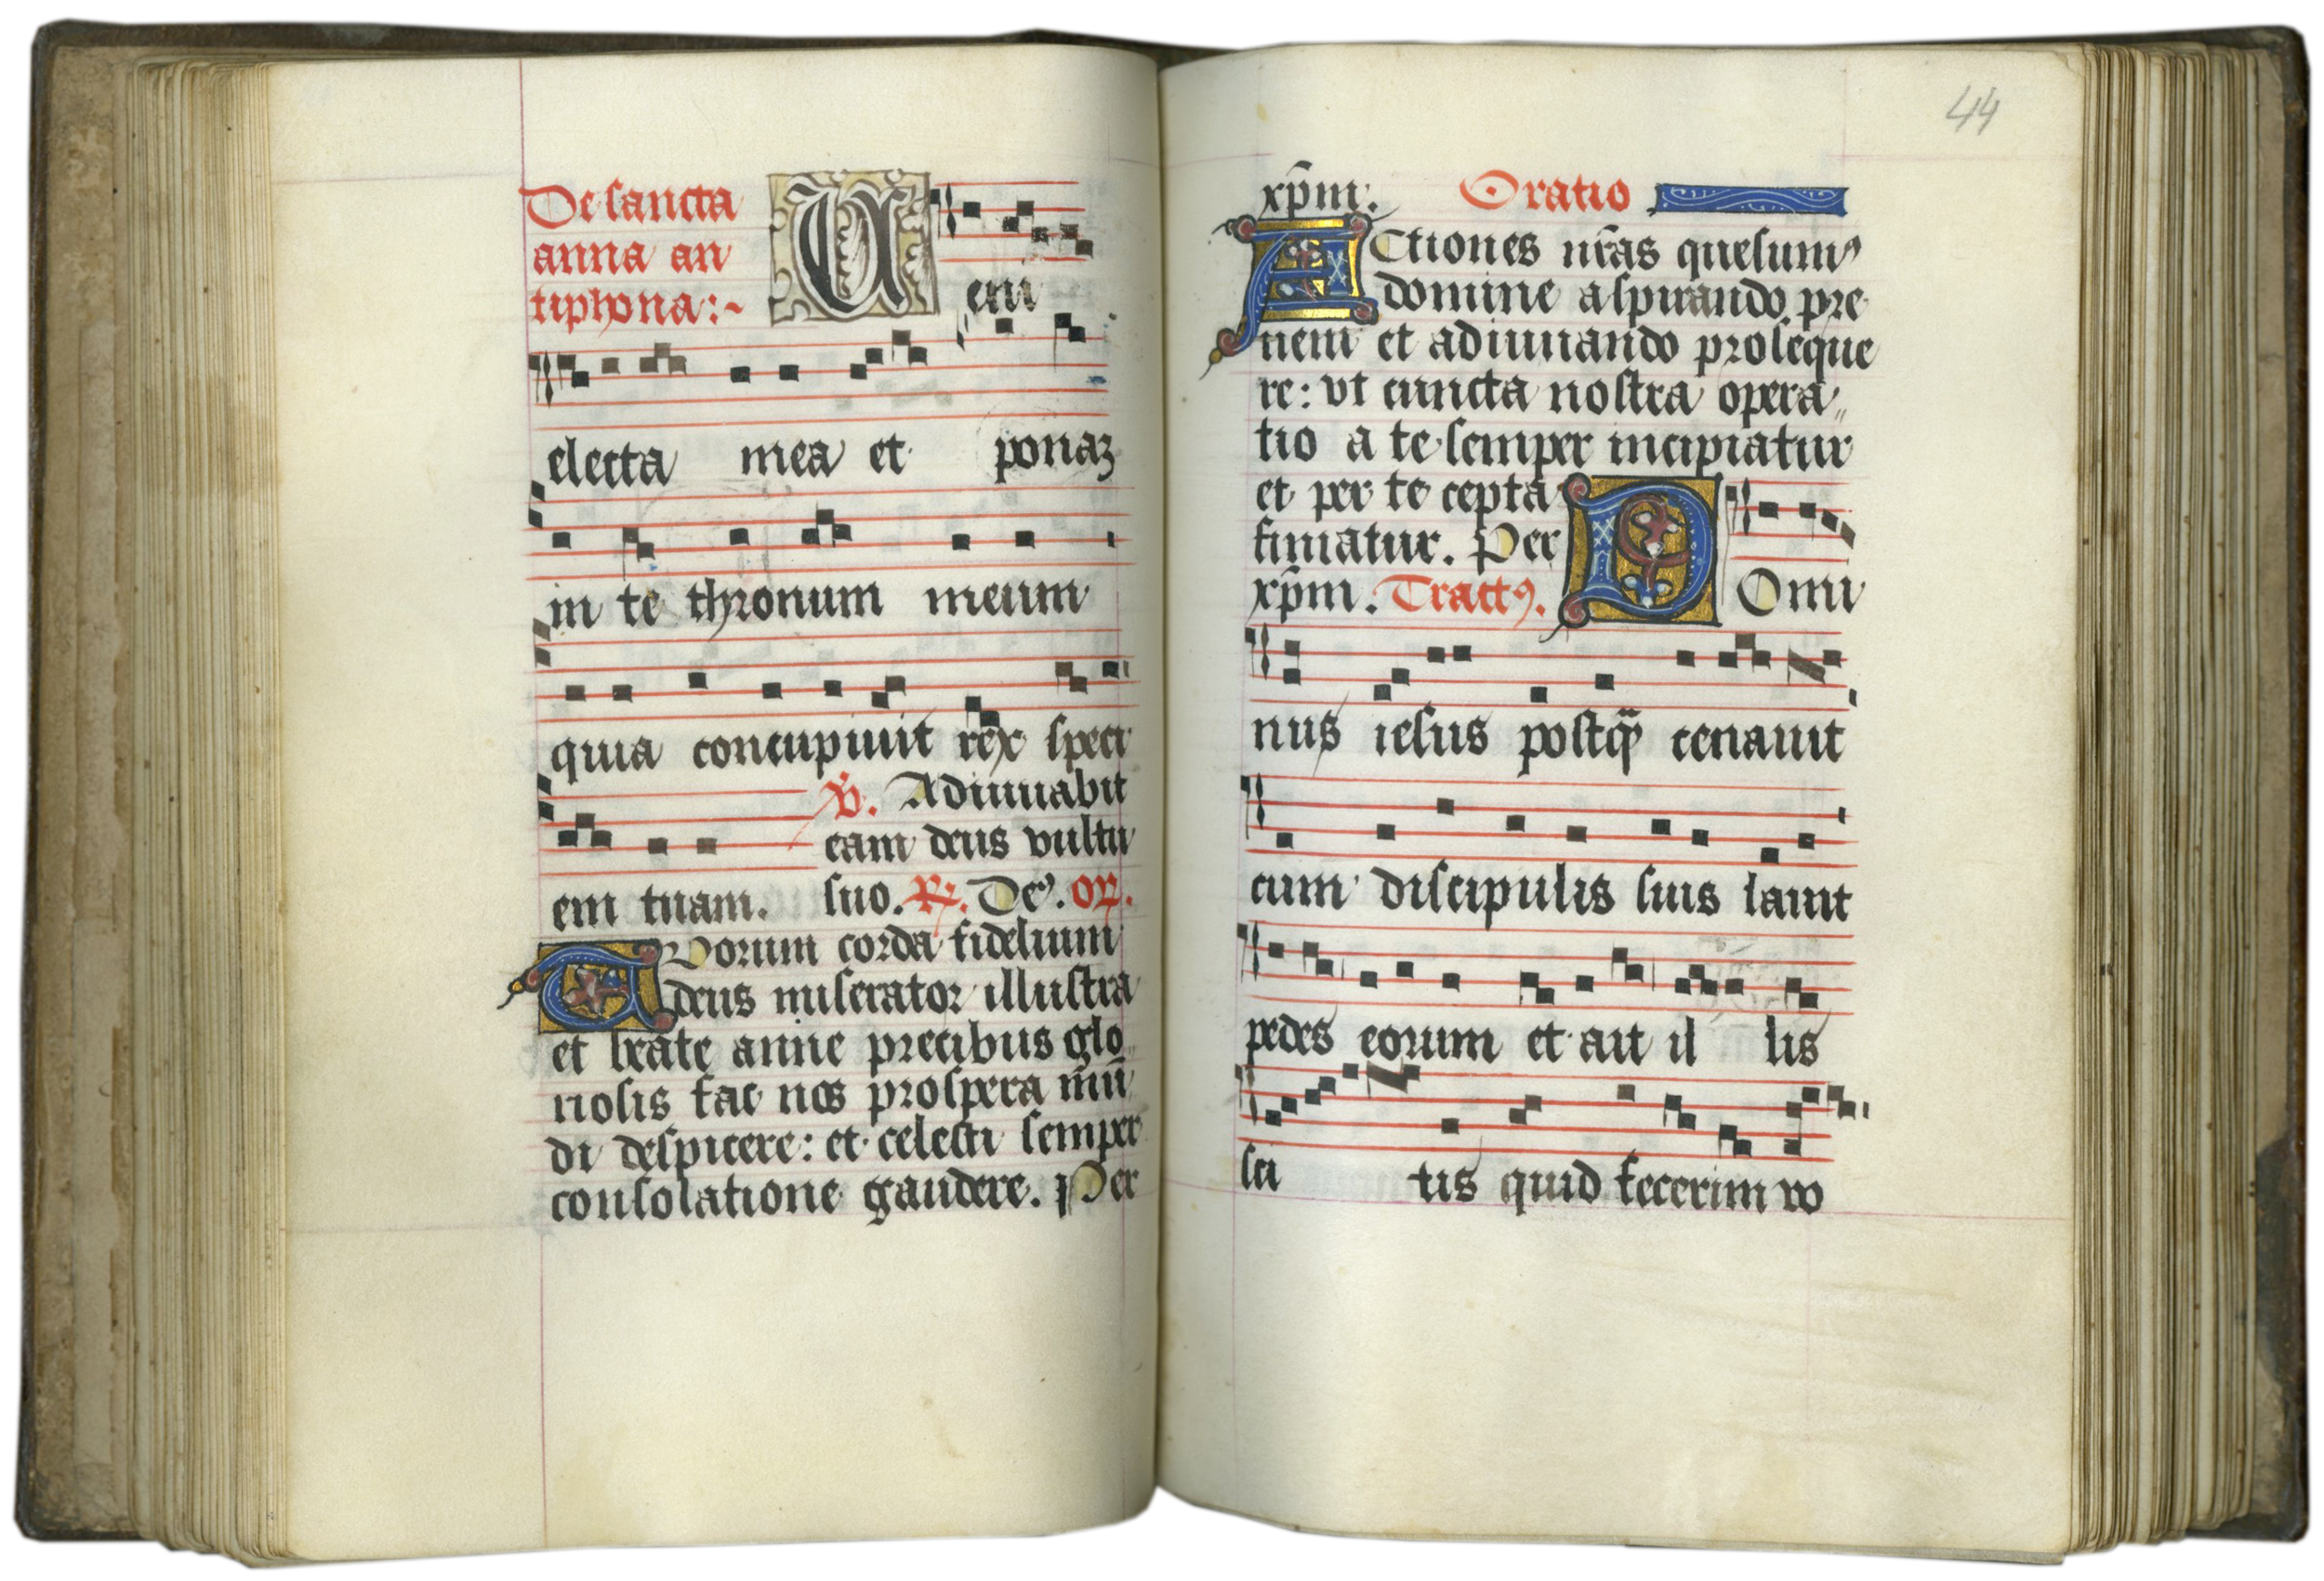 De sancta
anna an
tiphona:~
Veni
electa mea et ponaʒ
in te thronum meum
quia concupiuit rex speci
em tuam.
℣. Adiuuabit
eam deus vultu
suo. ℟. De⁹. or̃.
Tuorum corda fidelium
deus miserator illustra
et beate anne precibus glo
riosis fac nos prospera mũ
di despicere: et celesti semper
consolatione gaudere. Per
44
xp̃m. Oratio
Actiones nr̃as quesum⁹
domine aspirando pre
neni et adiuuando proseque
re: vt cuncta nostra opera
tio a te semper incipiatur
et per te cepta
finiatur. Per
xp̃m. Tract⁹.
Domi
nus iesus postq̃ cenauit
cum discipulis suis lauit
pedes eorum et ait il lis
sci tis quid fecerim vo